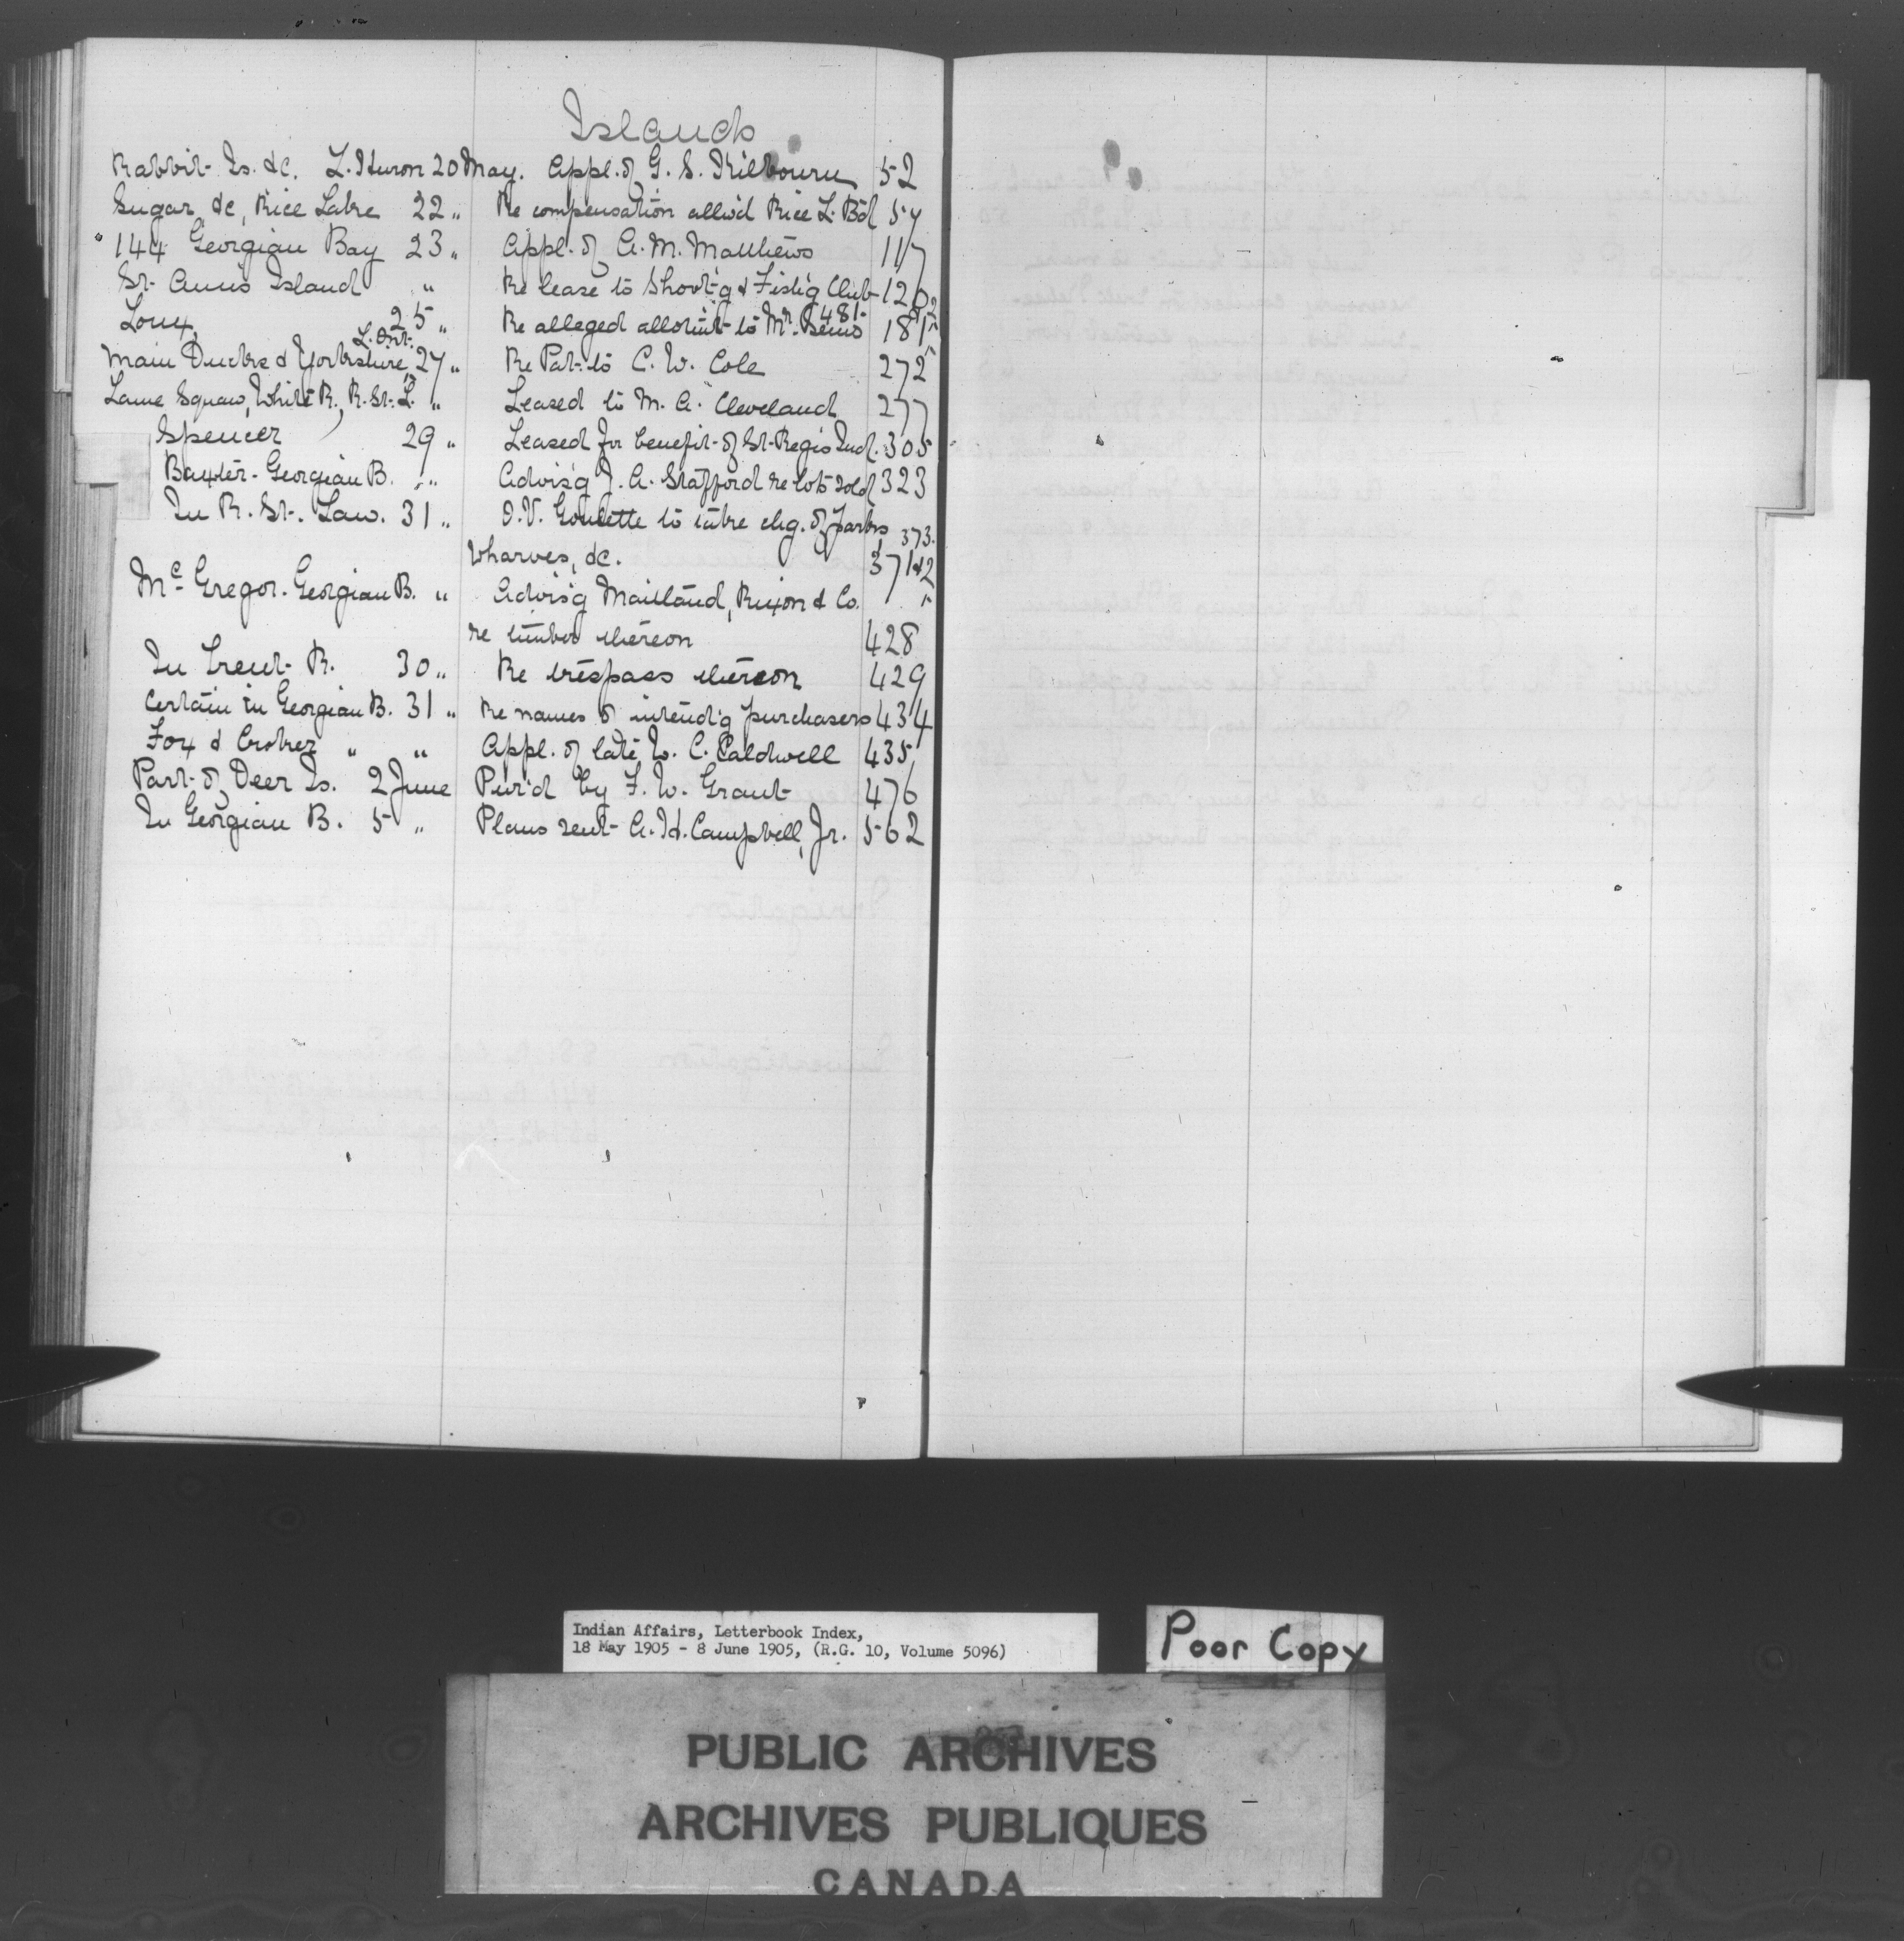 Islands
Rabbit Is. &c. L. Huron 20 May. Appl. of G. S. Kilbourn 52
Sugar &c, Rice Lake 22 " Re compensation allw'd Rice L. Bd 57
" 144 Georgian Bay 23 " Appl. of A. M. Matthews 117
St. Ann's Island " Re lease to Shoot'g & Fish'g Club 120
Loux, 25 " Re alleged allotm't to Mr. 481 181
Main Ducks & Yorkshire, L. Ont. 27 " Re Pat. to C. W. Cole 272
Lame Squaw, White R., R. St. L. " Leased to M. A. Cleveland 277
Spencer 29 " Leased for benefit of St. Regis Ind. 305
Baxter - Georgian B. " Advis'g J. A. Stafford re lots sold 323
In R. St. Law. 31 " O. V. Goulette to take chg. of parks 373.
Wharves, &c. 371 & 2
McGregor. Georgian B. " Advis'g Maitland, Rixon & Co.
re timber thereon 428
In Trent R. 30 " Re trespass thereon 429
Certain in Georgian B. 31 " Re names of intend'g purchasers 434
Fox & Croker " " Appl. of late W. C. Caldwell 435
Part of Deer Is. 2 June Pur'd by F. W. Grant 476
In Georgian B. 5 " Plans sent A. H. Campbell, Jr. 562
Indian Affairs, Letterbook Index,
18 May 1905 - 8 June 1905, (R.G. 10, Volume 5096)
Poor Copy
PUBLIC ARCHIVES
ARCHIVES PUBLIQUES
CANADA